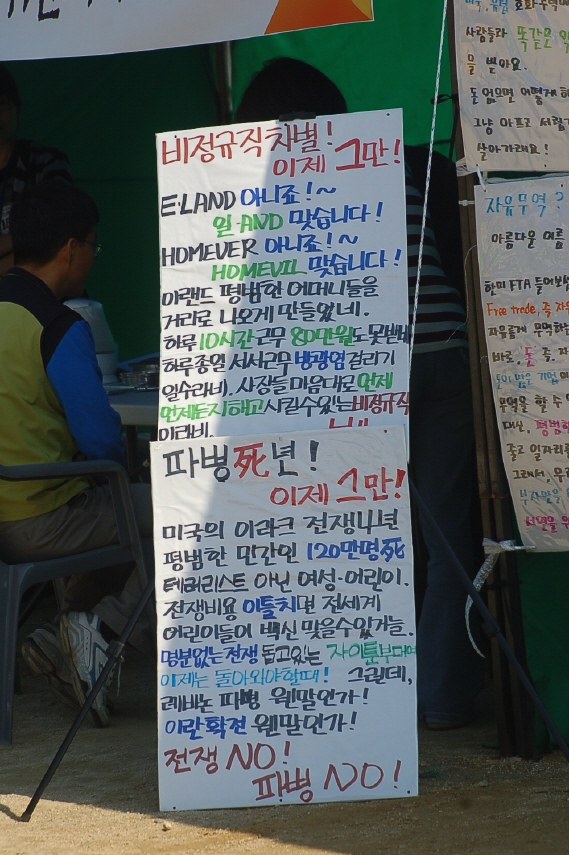 비정규직차별!
이제 그만!
E·LAND 아니죠!~
일·AND 맞습니다!
HOMEVER 아니죠!~
HOMEVIL 맞습니다!
이랜드 평범한 어머니들을
거리로 나오게 만들었네.
하루 10시간근무 80만원도 못받네
하루종일 서서근무 방광염 걸리기
일수라네. 사장들 마음대로 언제
언제든지 해고시킬수있는 비정규직
이라네.
파병死년!
이제 그만!
미국의 이라크 전쟁4년
평범한 민간인 120만명死
테러리스트 아닌 여성·어린이.
전쟁비용 이틀치면 전세계
어린이들이 백신 맞을수있거늘.
명분없는전쟁 돕고있는 자이툰부대여
이제는 돌아와야할때! 그런데,
레바논 파병 웬말인가!
이란확전 웬말인가!
전쟁 NO!
파병 NO!
사람들과 똑같은
을 받아요.
돈 없으면 어떻게
그냥 아프고 서럽
살아가래요!
자유무역?
아름다운 이름
한미 FTA 들어보
Free trade, 즉 자유
자유롭게 무역하는
바로, 돈 즉, 자
돈이 많은 기업
무역을 할 수
대신, 평범한
줄고 일자리를
그래서, 우리
서명을